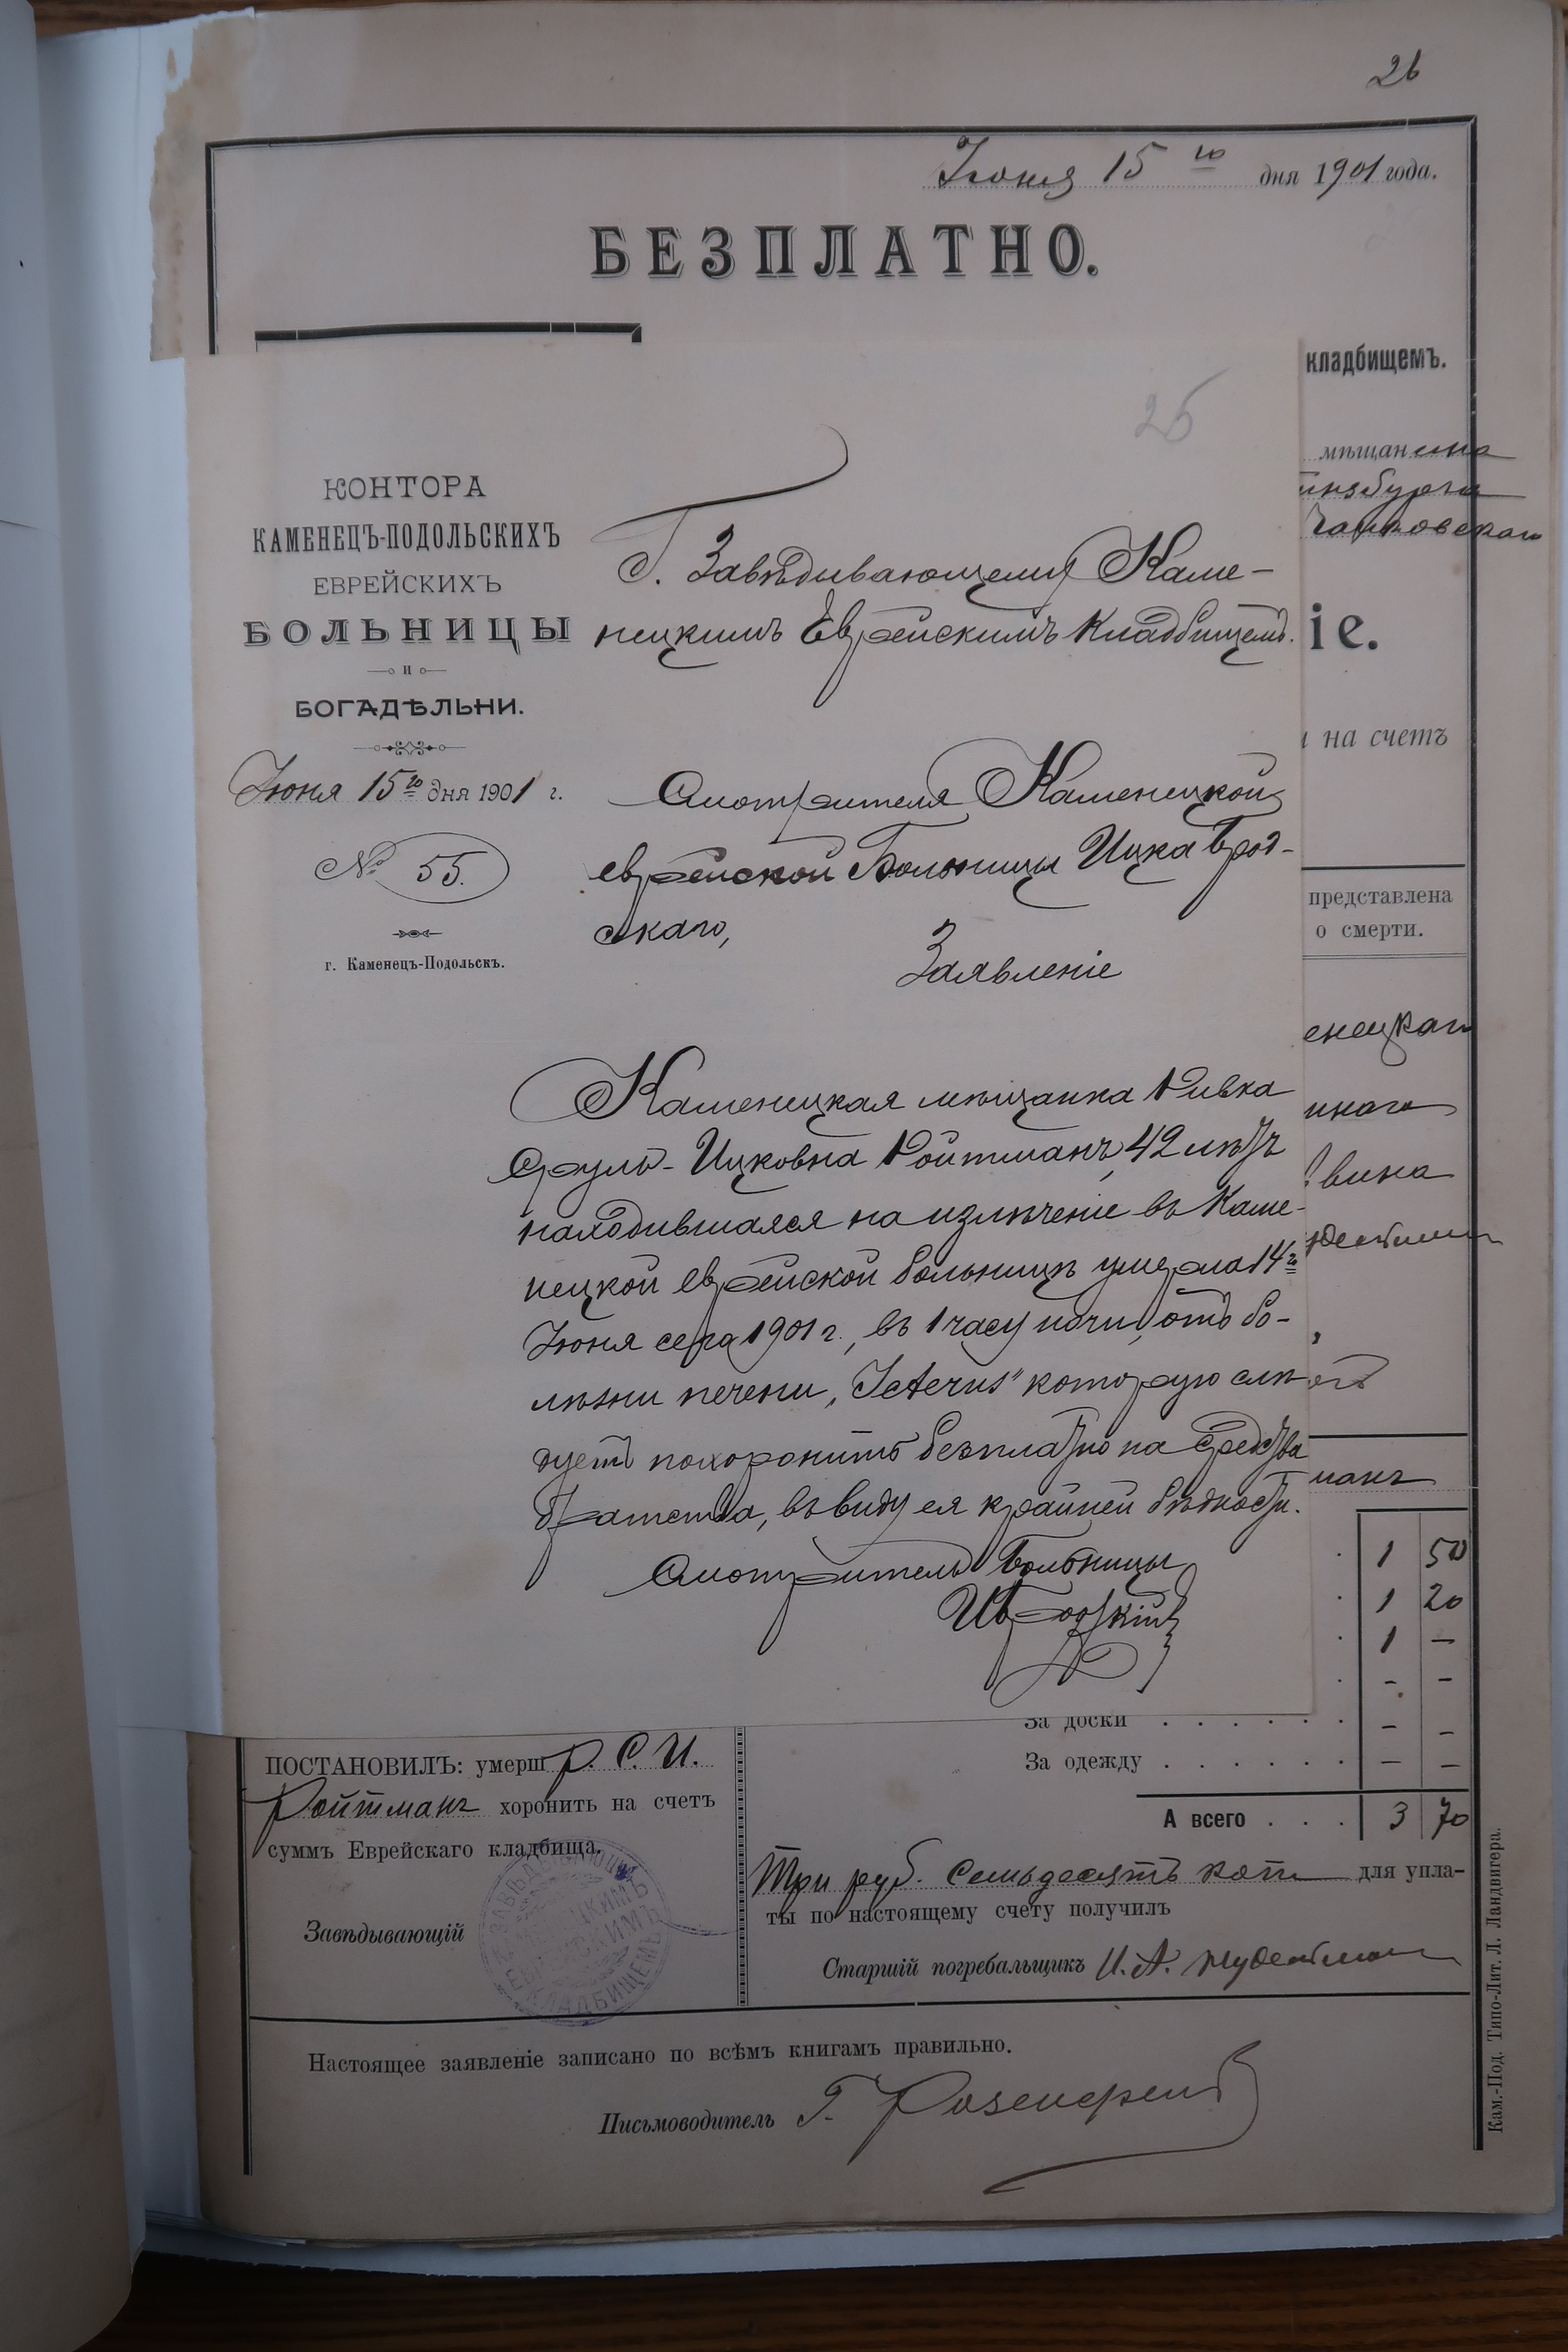 26
Іюня 15 го дня 1901 года.
БЕЗПЛАТНО.
кладбищемъ.
25
мѣщанина
инзбурга
КОНТОРА
КАМЕНЕЦЪ-ПОДОЛЬСКИХЪ
ЕВРЕЙСКИХЪ
БОЛЬНИЦЫ
и
БОГАДѢЛЬНИ.
Іюня 15 го дня 1901 г.
№ 55.
г. Каменецъ-Подольскъ.
Г. Завѣдывающему Каме-
нецкимъ Еврейскимъ Кладбищемъ.
іе.
на счетъ
Смотрителя Каменецкой
еврейской Больницы Ицка Брод-
скаго,
Заявленіе
представлена
о смерти.
енецкаго
Каменецкая мѣщанка Ривка
Сруль-Ицковна Ройтманъ, 42 лѣтъ
находившаяся на излѣченіе въ Каме-
нецкой еврейской больницѣ умерла 14 го
Іюня сего 1901 г., въ 1 часу ночи, отъ бо-
лѣзни печени, „Icterus" которую слѣ-
дуетъ похоронить безплатно на средства
братства, въ виду ея крайней бѣдности.
Смотритель Больницы
ИБродскій
манъ
1 50
1 20
1 —
- -
За доски . . . . . . - -
За одежду . . . . . . — —
А всего . . . 3 70
ПОСТАНОВИЛЪ: умерш р. С. И.
Ройтманъ хоронить на счетъ
суммъ Еврейскаго кладбища.
Завѣдывающій
Три руб. семьдесятъ коп для упла-
ты по настоящему счету получилъ
Старшій погребальщикъ И. А.
Настоящее заявленіе записано по всѣмъ книгамъ правильно.
Письмоводитель Г.
Кам.-Под. Типо-Лит. Л. Ландвигера.